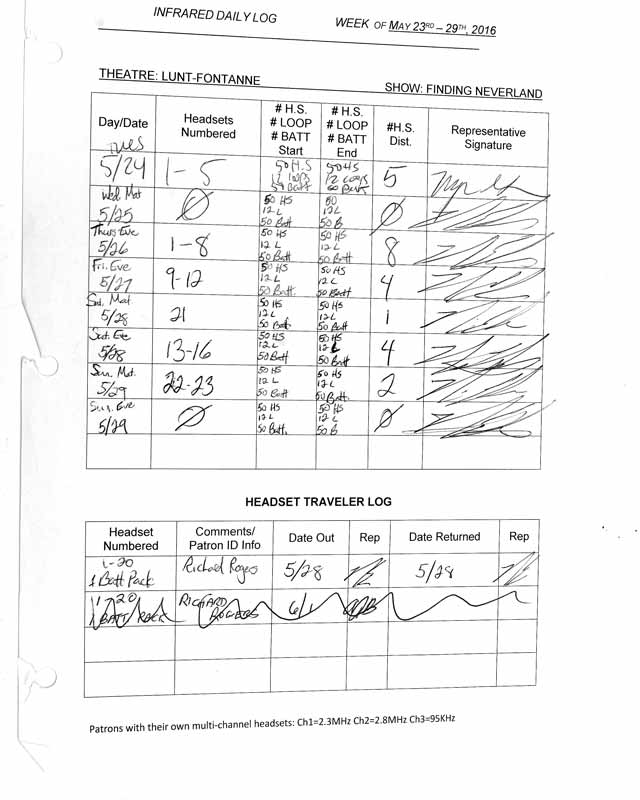 INFRARED DAILY LOG
WEEK OF MAY 23RD – 29TH, 2016
THEATRE: LUNT-FONTANNE
SHOW: FINDING NEVERLAND
Day/Date Headsets Numbered # H.S. # LOOP # BATT Start # H.S. # LOOP # BATT End #H.S. Dist. Representative Signature
Tues 5/24 1-5 50 H.S 12 loops Batt 50 HS 12 loops Batt 5
Wed Mat 5/25 Ø 50 HS 12 L 50 Batt 50 12 L 50 B Ø
Thurs Eve 5/26 1-8 50 HS 12 L 50 Batt 50 HS 12 L 50 Batt 8
Fri. Eve 5/27 9-12 50 HS 12 L 50 Batt. 50 HS 12 L 50 Batt 4
Sat. Mat. 5/28 21 50 HS 12 L 50 Batt 50 HS 12 L 50 Batt 1
Sat. Eve 5/28 13-16 50 HS 12 L 50 Batt 50 HS 12 L 50 Batt 4
Sun. Mat. 5/29 22-23 50 HS 12 L 50 Batt 50 HS 12 L 50 Batt. 2
Sun. Eve 5/29 Ø 50 HS 12 L 50 Batt. 50 HS 12 L 50 B Ø
HEADSET TRAVELER LOG
Headset Numbered Comments/ Patron ID Info Date Out Rep Date Returned Rep
1-20 1 Batt Pack Richard Rogers 5/28 5/28
1-20 1 BATT PACK RICHARD ROGERS 6/1
Patrons with their own multi-channel headsets: Ch1=2.3MHz Ch2=2.8MHz Ch3=95KHz